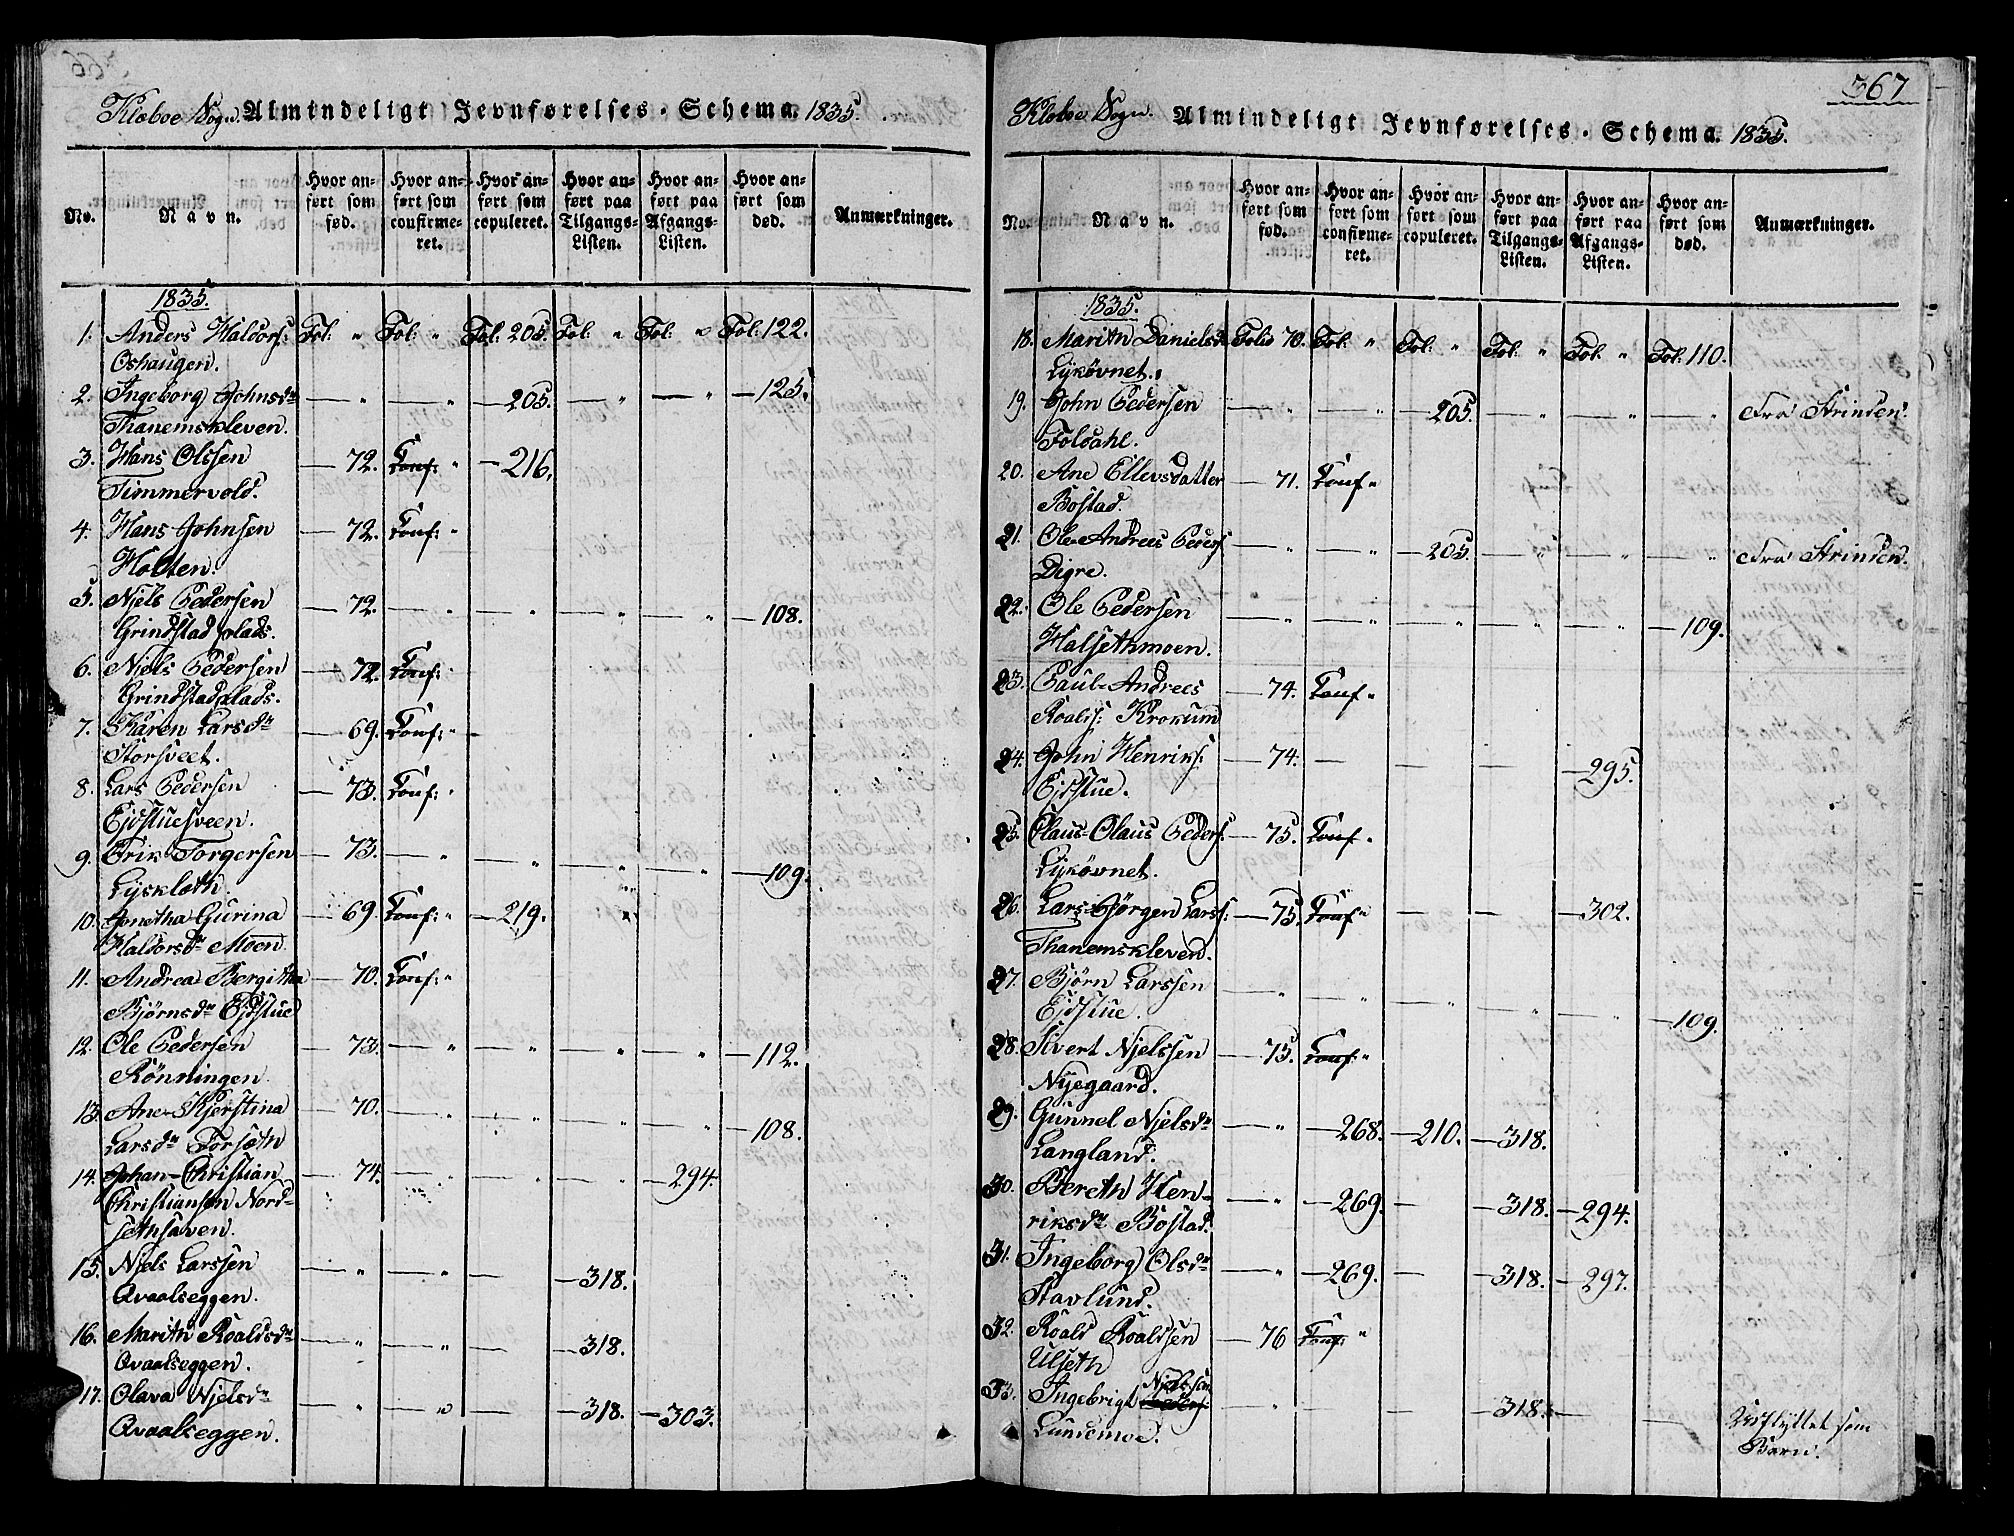 Klæboe Sogn. Almindeligt Jevnførelses-Schema. 1835.
No. Navn. Hvor anført som fød. Hvor anført som confirmeret. Hvor anført som copuleret. Hvor anført paa Tilgangs-Listen. Hvor anført paa Afgangs-Listen. Hvor anført som død. Anmærkninger.
1835.
1. Anders Haldors: Fol: " Fol: " Fol: 205. Fol: " Fol: " Fol: 122.
Oshaugen.
2. Ingeborg Johnsdr — " — " — 205. — " — " — 125.
Thanemskleven.
3. Hans Olssen — 72. Conf: " — 216.
Timmervold.
4. Hans Johnsen — 72. Conf: "
Holten.
5. Njels Pedersen — 72. — " — " — " — " — 108.
Grindstad plads.
6. Njels Pedersen — 72. Conf:
Grindstadplads.
7. Karen Larsdr — 69. Conf: "
Storsveet.
8. Lars Pedersen — 73. Conf: "
Ejdstuesveen.
9. Erik Torgersen — 73. — " — " — " — " — 109.
Lyskloth.
10. Jonetha Gurina — 69. Conf: " — 219.
Haldorsdr Moen.
11. Andrea Bergitha — 70. Conf: "
Bjørnsdr Ejdstue
12. Ole Pedersen — 73. — " — " — " — " — 112.
Rönningen.
13. Ane Kjerstina — 70. — " — " — " — " — 108.
Larsdr Forsæth
14. Johan-Christian — 74. — " — " — " — 294.
Christiansen Nord-
sethsaven.
15. Njels Larssen — " — " — — 318.
Qvaalseggen.
16. Marith Roaldsdr — " — " — — 318.
Qvaalseggen.
17. Olava Njelsdr — " — " — — 318. — 303.
Qvaalseggen.
367
Klæboe Sogn. Almindeligt Jevnførelses-Schema. 1835.
No. Navn. Hvor anført som fød. Hvor anført som confirmeret. Hvor anført som copuleret. Hvor anført paa Tilgangs-Listen. Hvor anført paa Afgangs-Listen. Hvor anført som død. Anmærkninger.
1835.
18. Marith Danielsd. Folio 70. Fol: " Fol: " Fol: " Fol: " Fol: 110.
Lykøvnet.
19. John Pedersen — " — " — 205. — " — " — " Fra Strinden.
Foldahl.
20. Ane Ellevsdatter — 71. Conf "
Bostad.
21. Ole Andreas Peders: — " — " — 205. — " — " — " Fra Strinden.
Digre.
22. Ole Pedersen — " — " — " — " — " — 109.
Halsethmoen.
23. Paul Andreas — 74. Conf "
Roalds: Krokum
24. John Henriks: — 74. — — — — 295.
Ejdstue.
25. Claus-Olaus Peders: — 75. Conf "
Lykøvnet.
26. Lars Jörgen Larss: — 75. Conf " — — — 302.
Thanemskleven.
27. Bjørn Larssen — " — " — " — " — " — 109.
Ejdstue.
28. Sivert Njelssen — 75. Conf: "
Nyegaard.
29. Gunnel Njelsdr — " — 268. — 210. — 318.
Langland.
30. Bereth Hen- — " — 269. — — 318. — 294.
riksdr Bostad.
31. Ingeborg Olsdr — " — 269. — — 318. — 297.
Stavlund.
32. Roald Roaldsen — 76 Conf: "
Ulseth
33. Ingebrigt Njelssen — " — — — 318. — — Udflyttet som
Lundemoe. Barn.